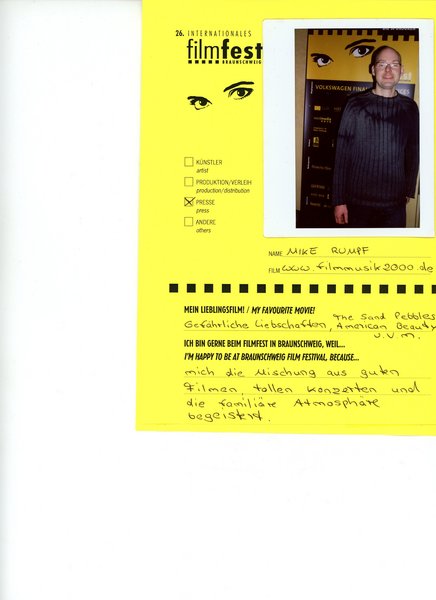 26. INTERNATIONALES
filmfest
BRAUNSCHWEIG
VOLKSWAGEN FINAN
KÜNSTLER
artist
PRODUKTION/VERLEIH
production/distribution
PRESSE
press
ANDERE
others
NAME MIKE RUMPF
FILM www.filmmusik2000.de
MEIN LIEBLINGSFILM! / MY FAVOURITE MOVIE!
The Sand Pebbles
Gefährliche Liebschaften, American Beauty
u.v.m.
ICH BIN GERNE BEIM FILMFEST IN BRAUNSCHWEIG, WEIL...
I'M HAPPY TO BE AT BRAUNSCHWEIG FILM FESTIVAL, BECAUSE...
mich die Mischung aus guten
Filmen, tollen Konzerten und
die familiäre Atmosphäre
begeistert.